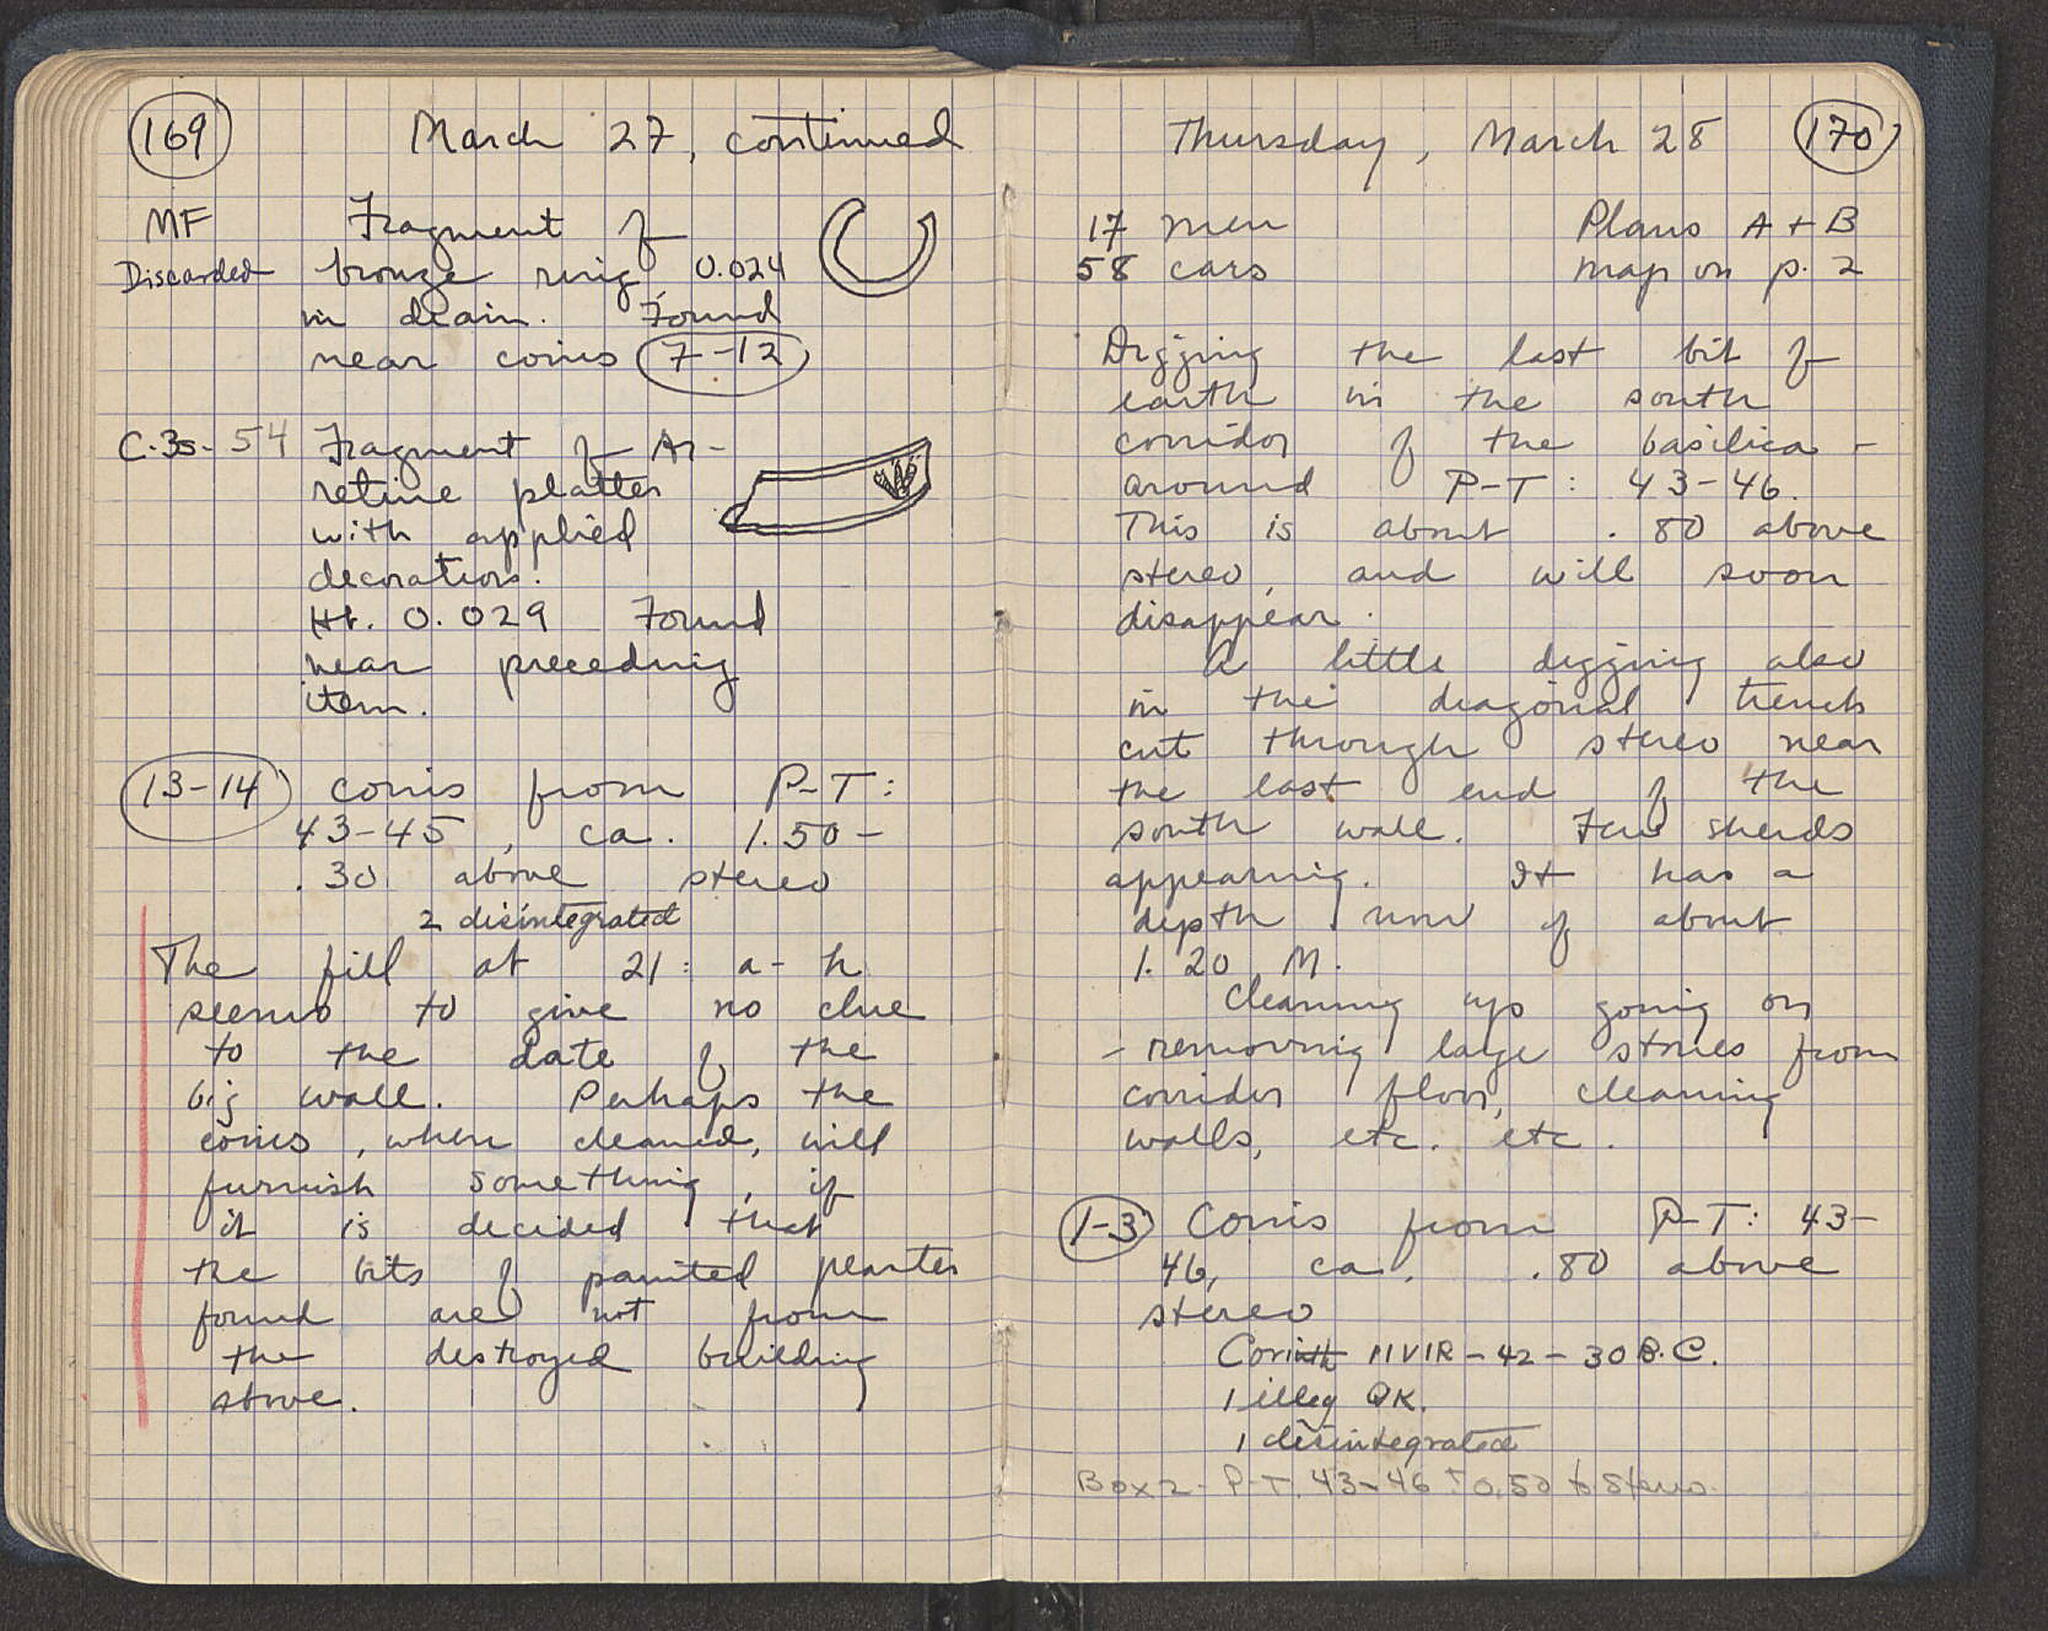 169
March 27, continued
MF
Discarded
Fragment of
bronze ring, 0.024
in drain. Found
near coins 7-12
C-35-54 Fragment of Ar-
retine platter
with applied
decoration.
Ht. 0.029 Found
near preceding
item.
13-14 coins from P-T:
43-45, ca. 1.50-
.30 above stereo
2 disintegrated
The fill at 21: a-h
seems to give no clue
to the date of the
big wall. Perhaps the
coins, when cleaned, will
furnish something, if
it is decided that
the bits of painted plaster
found are not from
the destroyed building
above.
Thursday, March 28
170
17 men Plans A+B
58 cars map on p. 2
Digging the last bit of
earth in the south
corridor of the basilica -
around P-T: 43-46.
This is about .80 above
stereo, and will soon
disappear.
A little digging also
in the diagonal trench
cut through stereo near
the east end of the
south wall. Few sherds
appearing. It has a
depth now of about
1.20 M.
Cleaning up going on
- removing large stones from
corridor floor, cleaning
walls, etc. etc.
1-3 Coins from P-T: 43-
46, ca. .80 above
stereo
Corinth IIVIR - 42 - 30 B.C.
1 illeg GK.
1 disintegrated
Box 2 - P-T. 43-46 + 0.50 to Stereo.